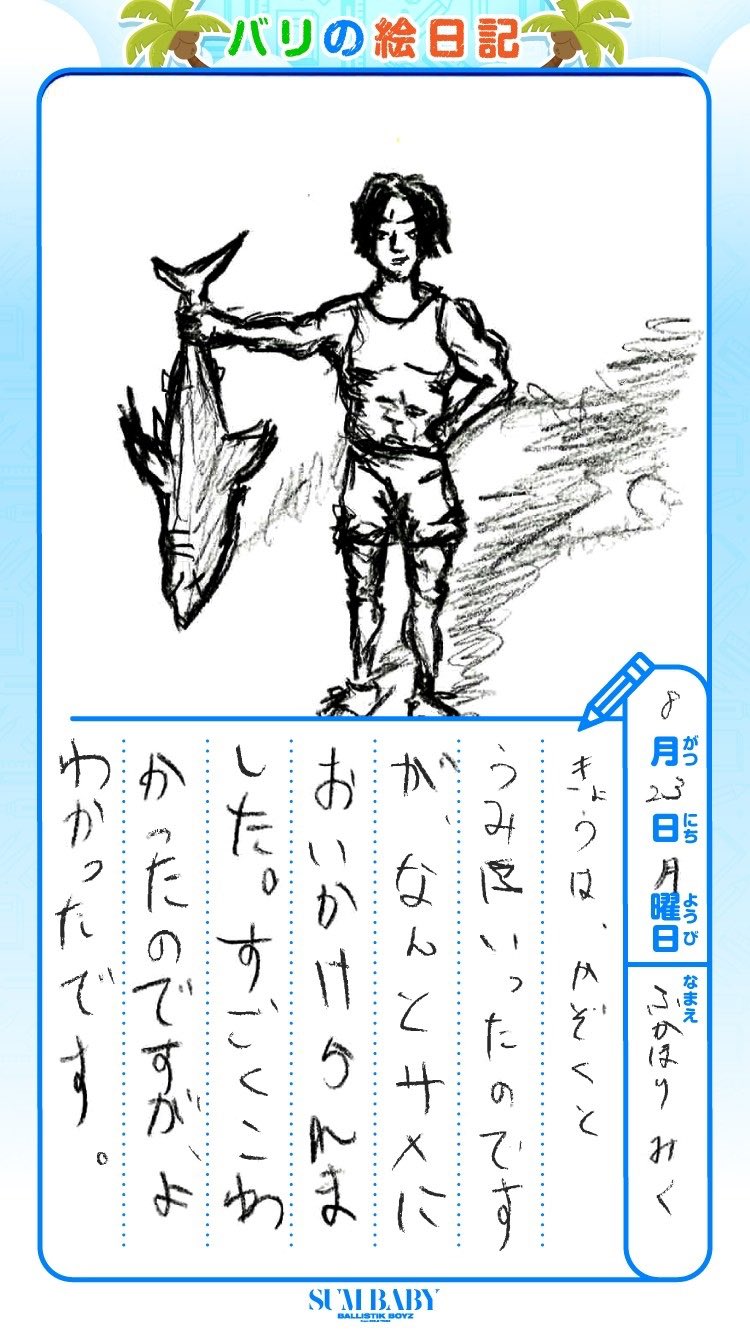 バリの絵日記
8月23日月曜日
がつ
にち
ようび
なまえ
ふかほり みく
きょうは、かぞくと
うみにいったのです
が、なんとサメに
おいかけられま
した。すごくこわ
かったのですが、よ
わかったです。
SUM BABY
BALLISTIK BOYZ